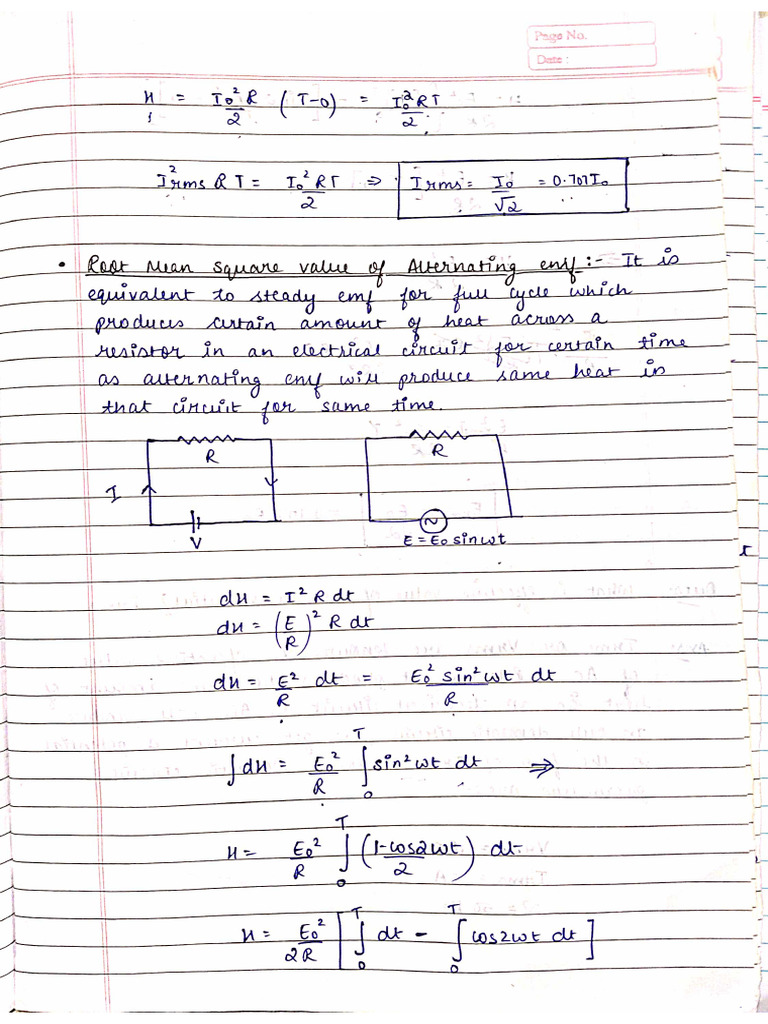 Page No.
Date :
H = I₀²R/2 (T-0) = I₀²RT/2
I²rms RT = I₀²RT/2 ⇒ Irms = I₀/√2 = 0.707I₀
• Root Mean Square value of Alternating emf :- It is
equivalent to steady emf for full cycle which
produces certain amount of heat across a
resistor in an electrical circuit for certain time
as alternating emf will produce same heat in
that circuit for same time.
R R
I
V E = E₀ sinωt
dH = I² R dt
dH = (E/R)² R dt
dH = E²/R dt = E₀² sin²ωt dt/R
∫dH = E₀²/R ∫₀ᵀ sin²ωt dt ⇒
H = E₀²/R ∫₀ᵀ (1-cos2ωt/2) dt
H = E₀²/2R [∫₀ᵀ dt - ∫₀ᵀ cos2ωt dt]